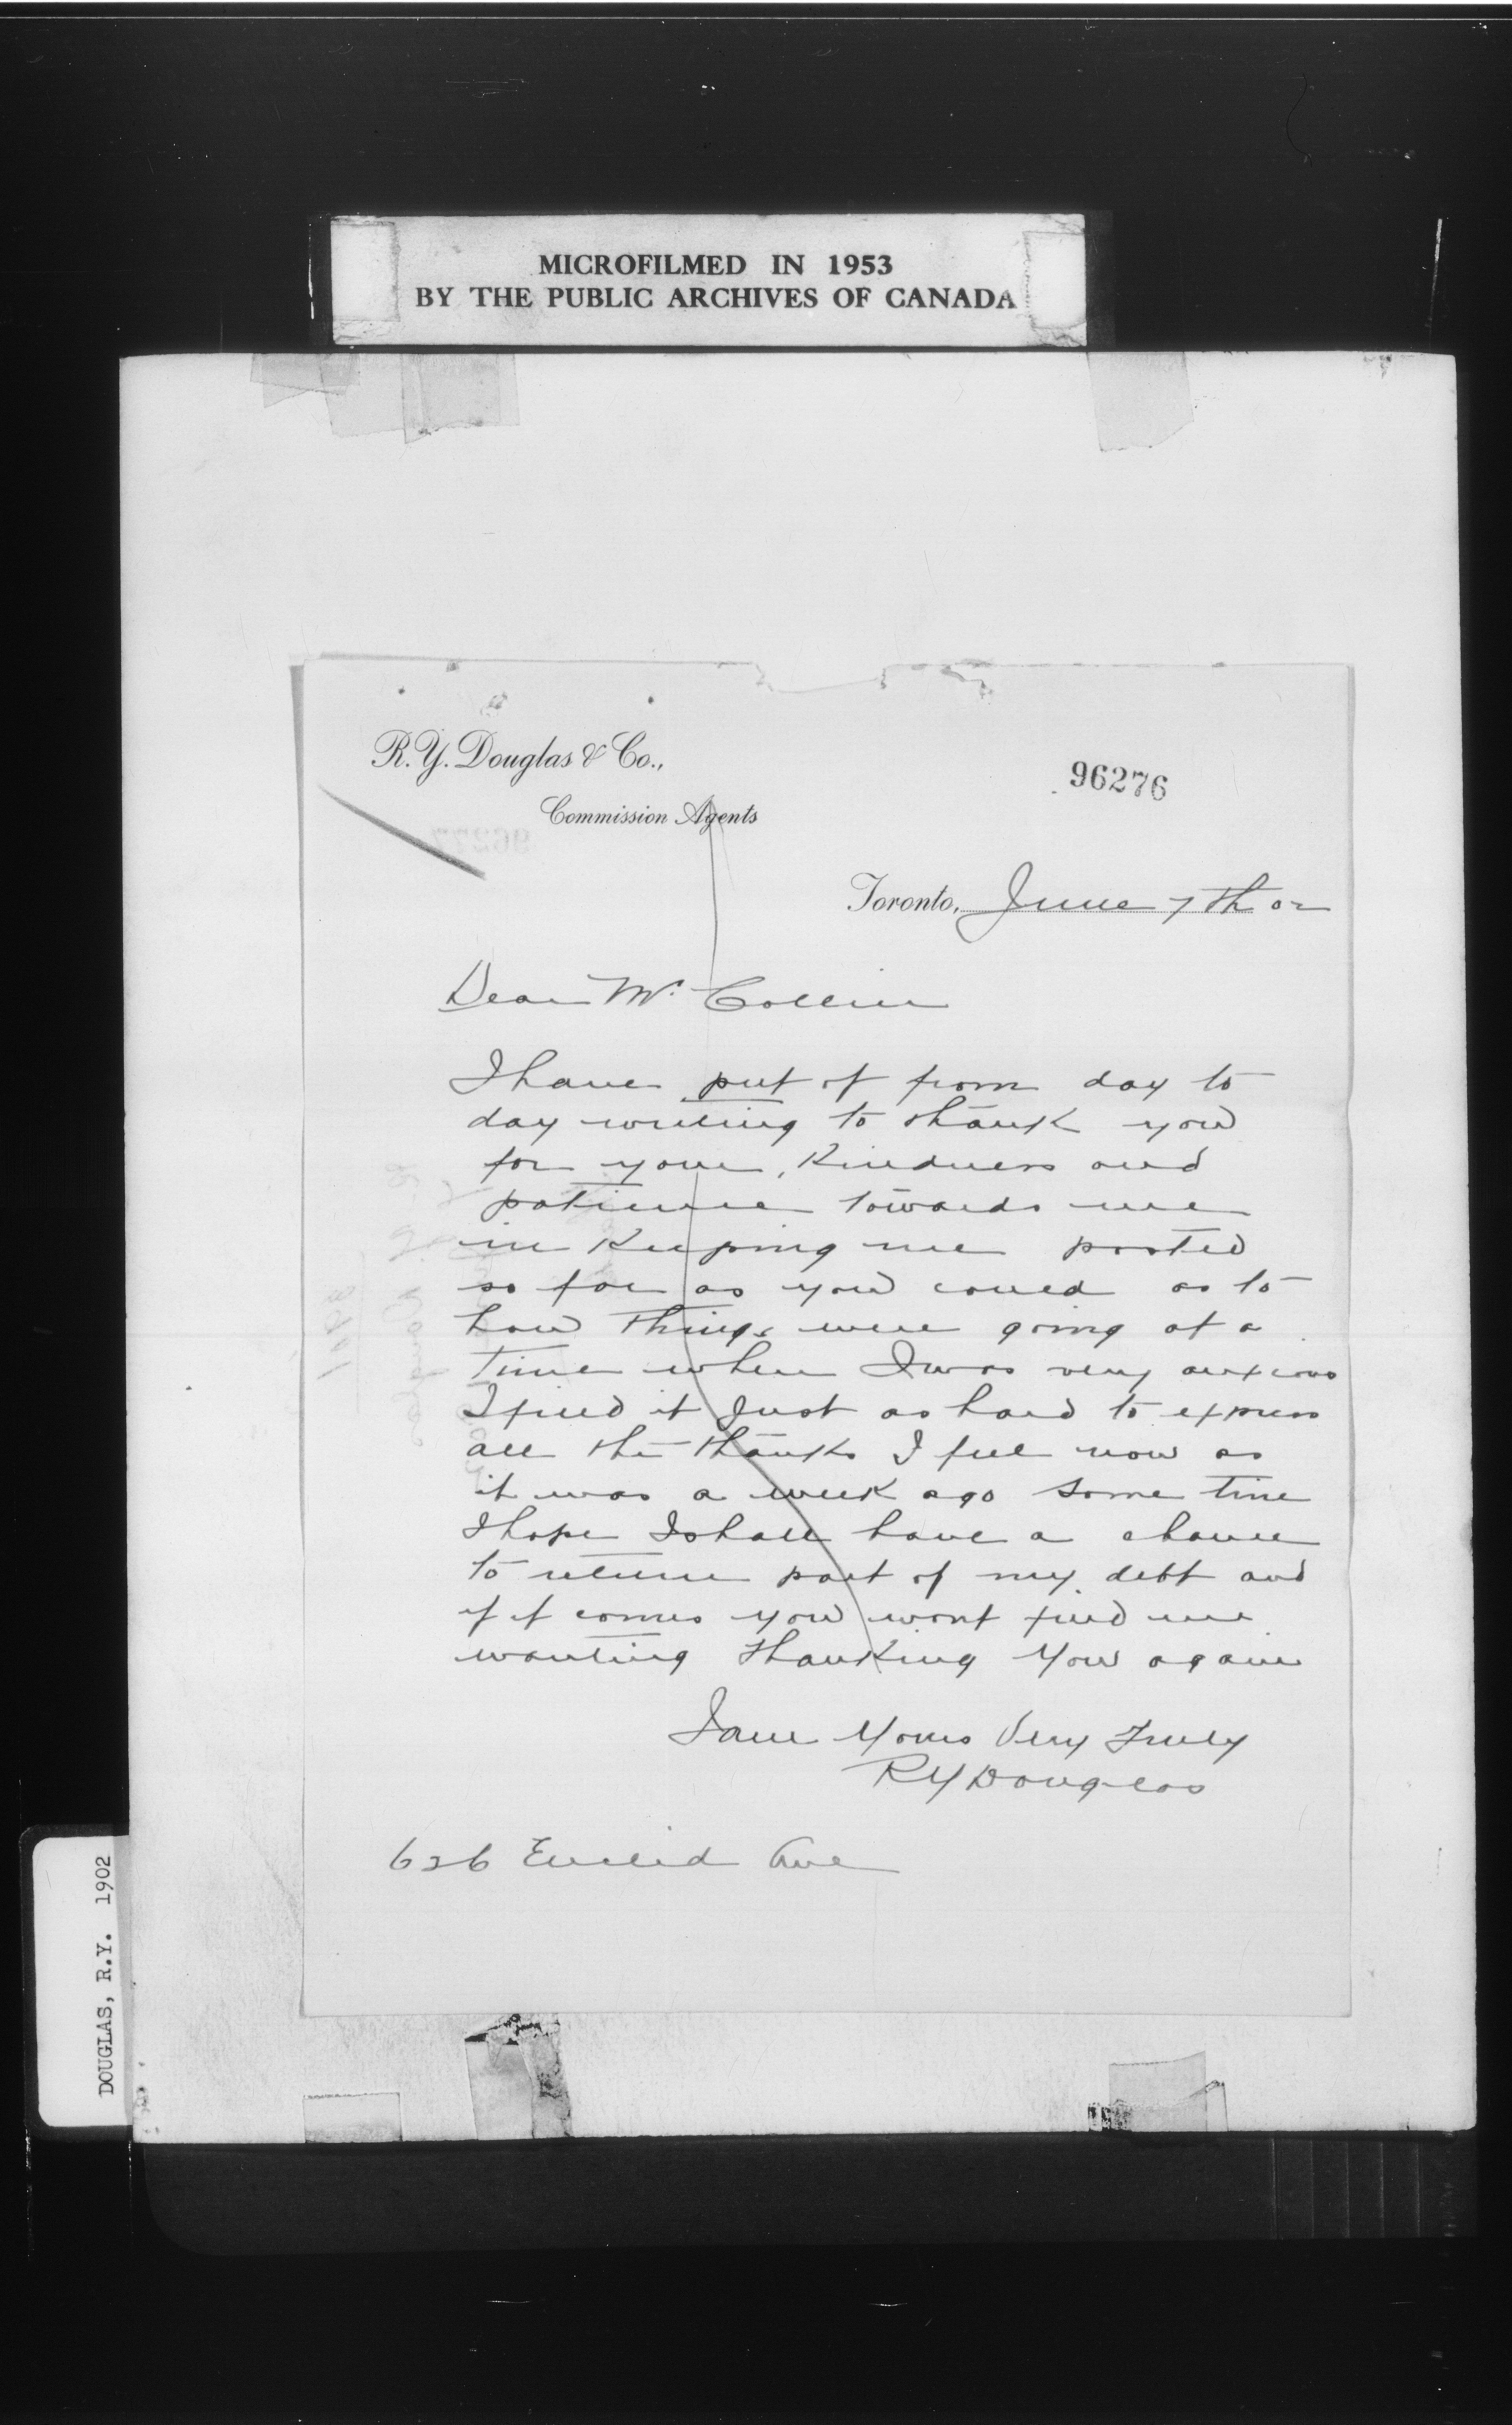 MICROFILMED IN 1953
BY THE PUBLIC ARCHIVES OF CANADA
R. Y. Douglas & Co.,
Commission Agents
96276
Toronto, June 7th 02
Dear Mr. Collier
I have put of from day to
day writing to thank you
for your, Kindness and
patience towards me
in Keeping me posted
so far as you could as to
how things were going at a
time when I was very anxious
I find it Just as hard to express
all the thanks I feel now as
it was a week ago some time
I hope I shall have a chance
to return part of my debt and
if it comes you wont find me
wanting thanking You again
I am Yours Very Truly
R Y Douglas
626 Euclid Ave
DOUGLAS, R.Y. 1902